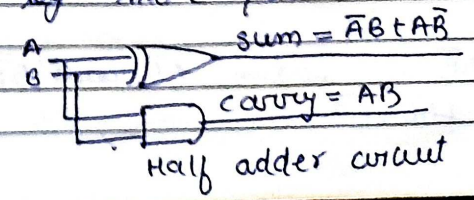 sum = A̅B + AB̅
A
B
carry = AB
Half adder circuit